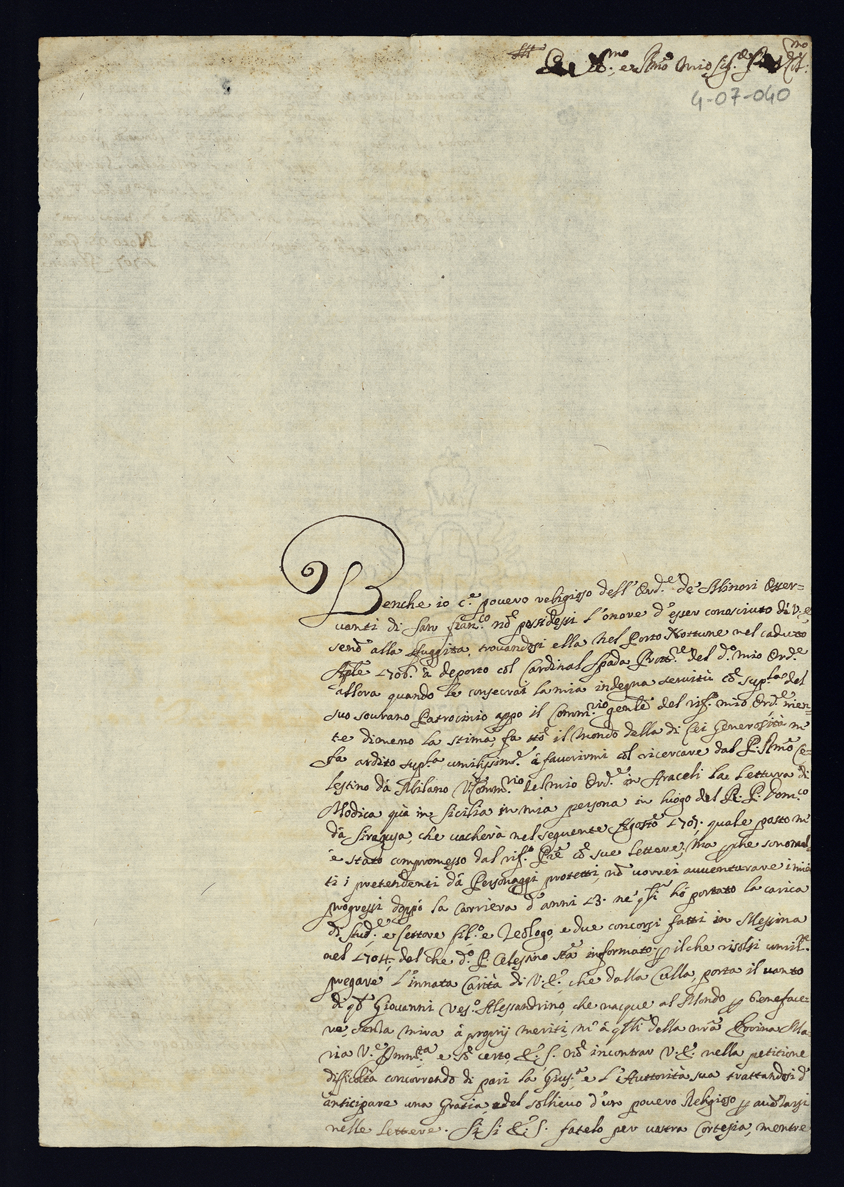 Ill.mo e Rmo mio Sig.r
4-07-040
Benche io c.e povero religioso dell'Ord.e de Minori Osser=
vanti di San Fran.co nõ possedessi l'onore d'esser conosciuto dà V.E.
senõ alla fuggita, trovandosi ella nel Porto Nettune nel caduto
Aple 1706. à deporto col Cardinal Spada Prott.re del d.o mio Ord.e
allora quando le consecrai la mia indegna servitù cõ supp.a del
suo sourano Patrocinio appo il Comm.rio gente del rif.o mio Ord.e nien=
te dimeno la stima, fa tto il mondo della di Lei Generosità m'
fa ardito suppl.a umilissim.e à favorirmi col ricercare dal P. Rmo Ce=
lestino dà Milano V. Comm.rio del mio Ord.e in Araceli la Lettura di
Modica quà in Sicilia in mia persona in luogo del P. Dom.co
dà Siragusa, che vacherà nel seguente Agosto 1707. quale posto m'
è stato compromesso dal rif.o Pře cõ sue lettere, ma che sono mol
ti i pretendenti dà Personaggi protetti, nõ vorrei avventurare i miei
progressi doppò la carriera d'anni 13. ne' qli hò portato la carica
di Stud.e e Lettore fil.o e Teologo, e due concorsi fatti in Messina
nel 1704. del che d.o P. Celestino stà informato, il che risolsi umil.e
pregare l'innata Carità di V.E. che dalla Culla porta il vanto
di Giovanni Ves.o Alessandrino, che nacque al Mondo p beneface=
re, senza mira à proprij meriti, m' à qlli della nrã Eroina Ma
ria V.e Imm.ta e sõ certo E. S. nõ incontrar V.E. nella petitione
difficoltà concorrendo di pari la Giust.a e l'Auttorità sua trattandosi d'
anticipare una Gratia, e del sollievo d'un povero Religioso p avãzarsi
nelle Lettere. Si Si E. S. fatelo per vostra Cortesia, mentre